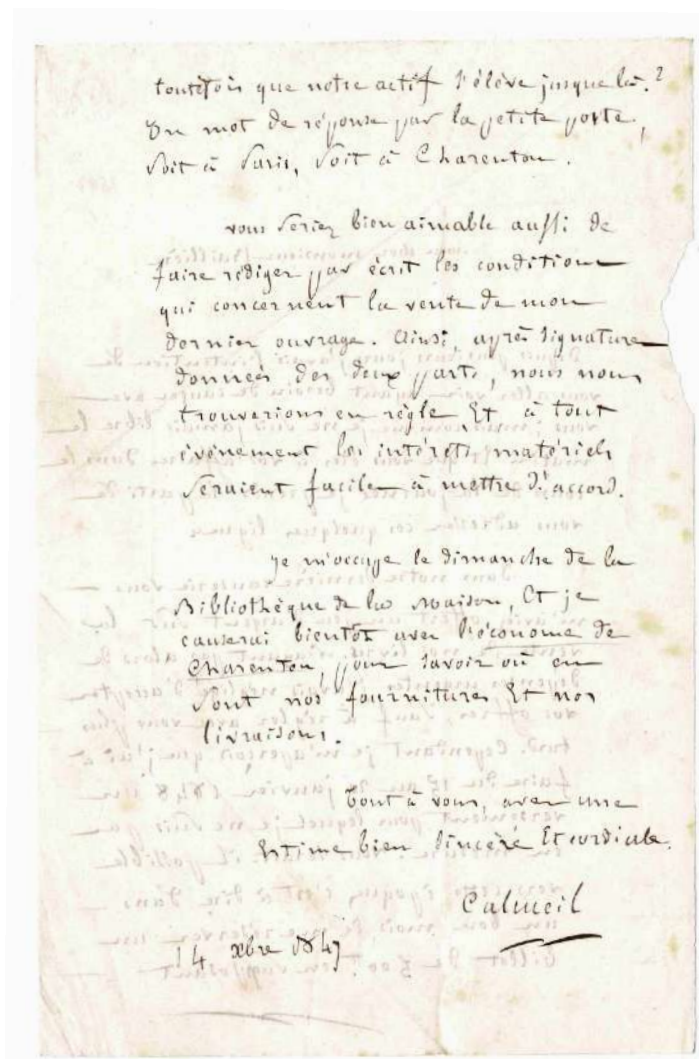 toutefois que notre actif s'élève jusque là ?
Un mot de réponse par la petite poste,
soit à Paris, soit à Charenton.
vous seriez bien aimable aussi de
faire rédiger par écrit les conditions
qui concernent la vente de mon
dernier ouvrage. Ainsi, après signatures
données des deux parts, nous nous
trouverions en règle, Et à tout
événement les intérêts matériels
seraient facile à mettre d'accord.
je m'occupe le dimanche de la
Bibliothèque de la maison, Et je
causerai bientôt avec l'économe de
Charenton, pour savoir où en
sont nos fournitures Et nos
livraisons.
tout à vous, avec une
Estime bien sincère Et cordiale.
Calmeil
14 xbre 1847